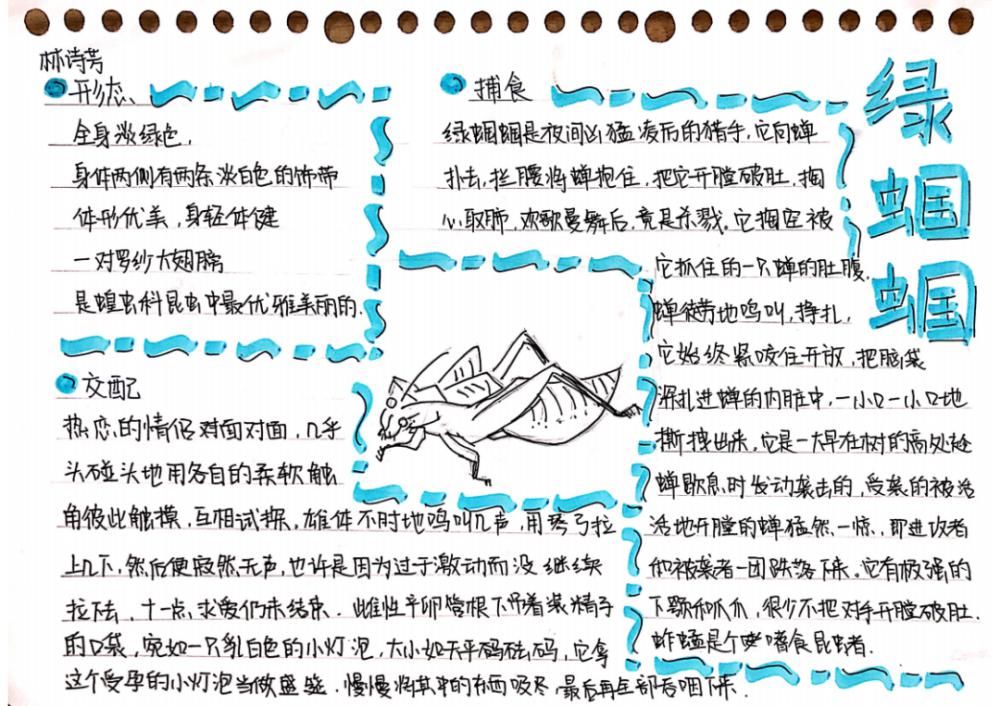 林诗芳
形态、
全身淡绿色，
身体两侧有两条淡白色的饰带
体形优美，身轻体健
一对罗纱大翅膀
是蝗虫科昆虫中最优雅美丽的.
交配
热恋的情侣对面对面，几乎
头碰头地用各自的柔软触
角彼此触摸，互相试探，雄体不时地鸣叫几声，用琴弓拉
上几下，然后便寂然无声，也许是因为过于激动而没继续
拉下去，十一点，求爱仍未结束．雌性产卵管根下吊着装精子
的口袋，宛如一只乳白色的小灯泡，大小如天平码砝码，它拿
这个受孕的小灯泡当做盛筵．慢慢将其中的东西吸尽，最后再全部吞咽下来．
捕食
绿蝈蝈是夜间凶猛凌后的猎手，它向蝉
扑去，拦腰将蝉抱住，把它开膛破肚，掏
心取肺，欢歌曼舞后，竟是杀戮。它掏空被
它抓住的一只蝉的肚腹．
蝉徒劳地鸣叫，挣扎，
它始终紧咬住开放，把脑袋
深扎进蝉的内脏中，一小口一小口地
撕拽出来，它是一大早在树的高处趁
蝉歇息时发动袭击的，受袭的被活
活地开膛的蝉猛然一惊，即进攻者
和被袭者一团跌落下来。它有极强的
下颚和爪，很少不把对手开膛破肚．
蚱蜢是个嗜食昆虫者．
绿蝈蝈